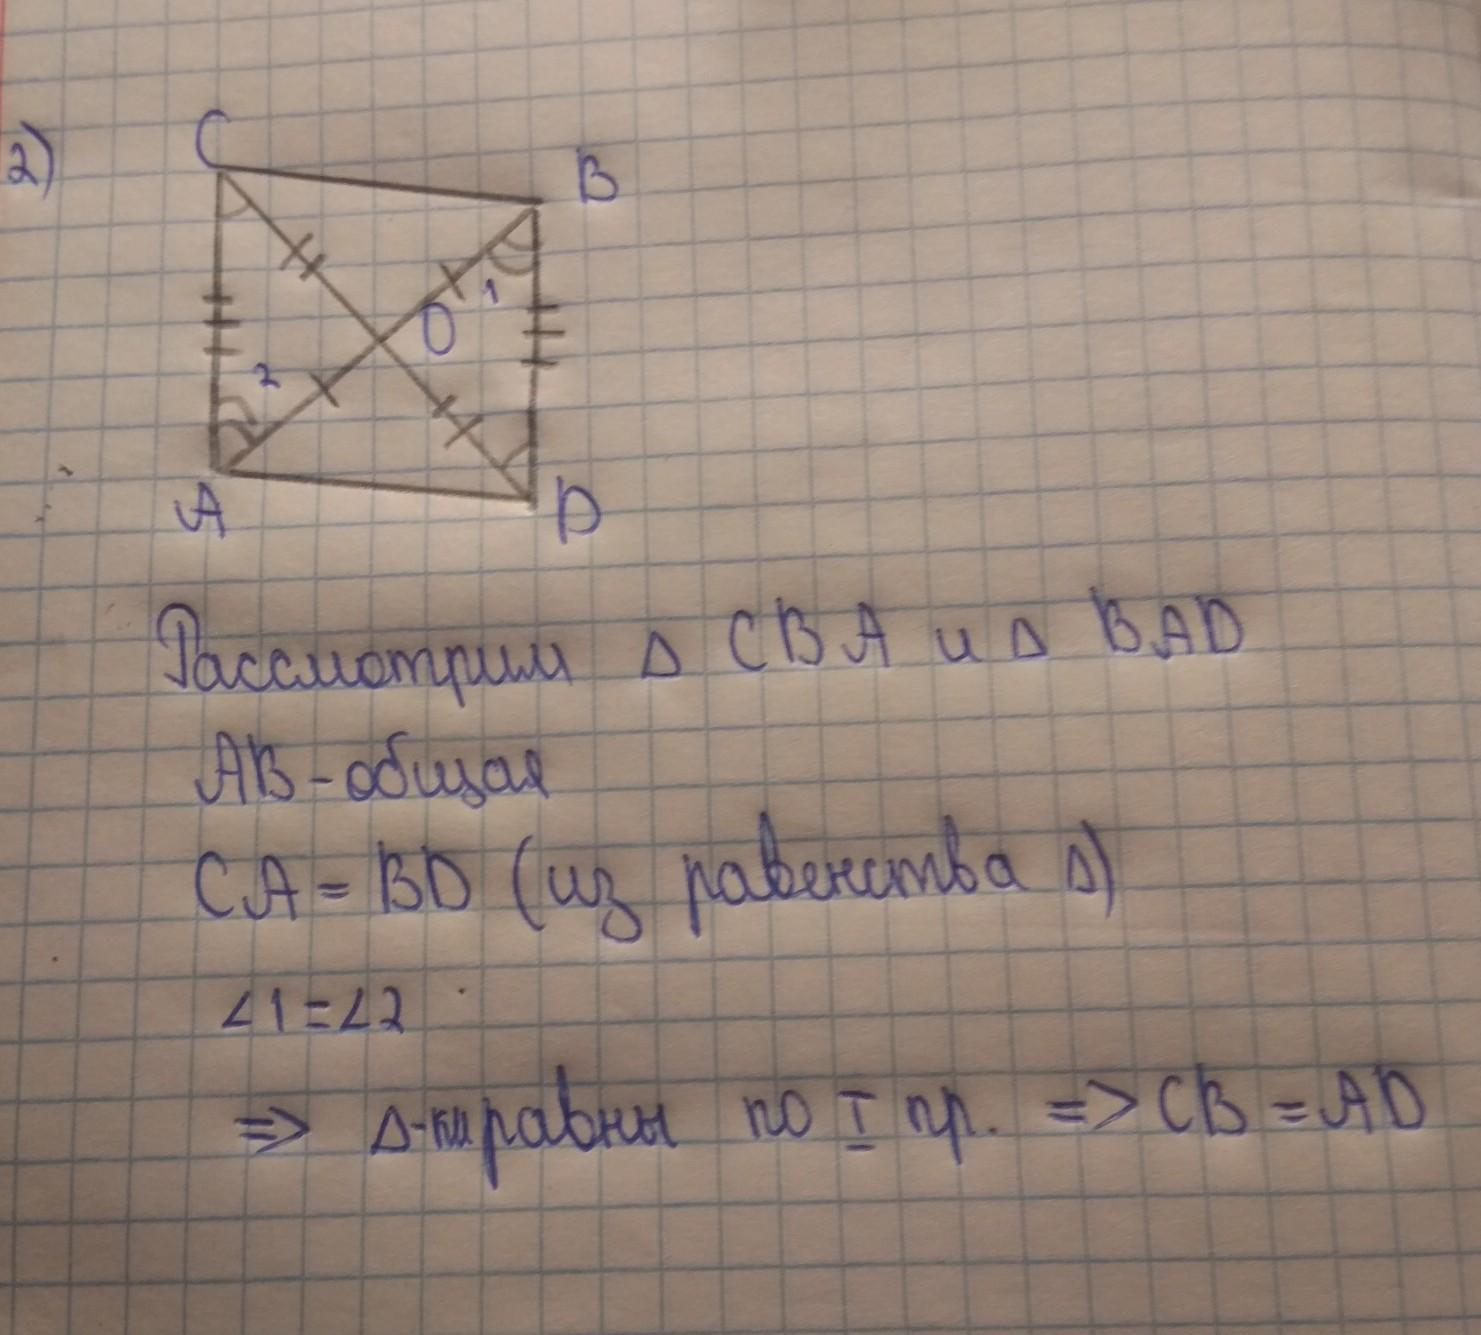 2)
C
B
1
O
2
A
D
Рассмотрим Δ CBA и Δ BAD
AB - общая
CA = BD (из равенства Δ)
∠1 = ∠2
=> Δ-ки равны по I пр. => CB = AD